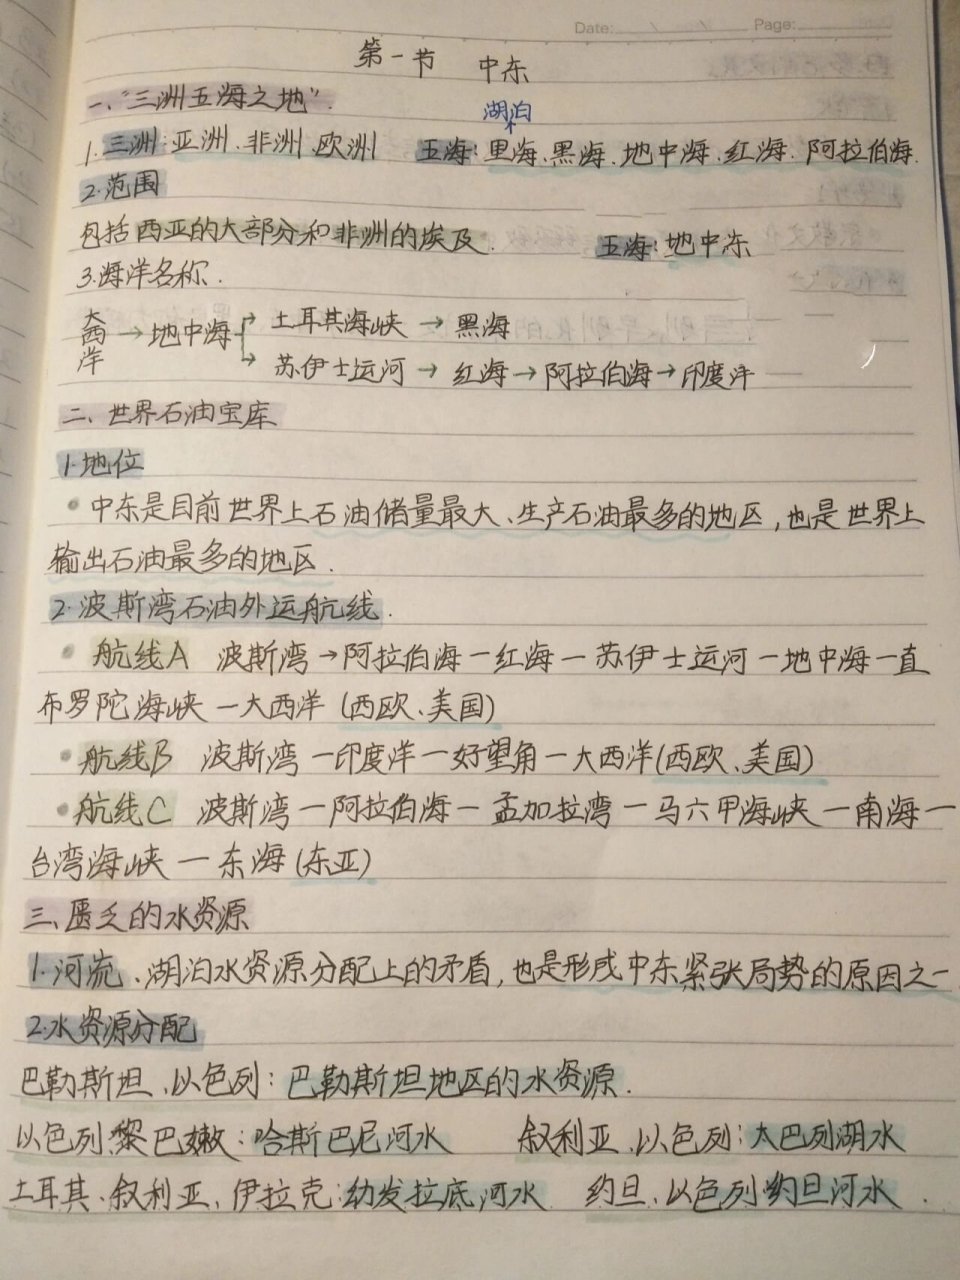 Date: / / Page:
第一节 中东
一、"三洲五海之地".
湖泊
1.三洲:亚洲、非洲、欧洲 五海:里海、黑海、地中海、红海、阿拉伯海.
2.范围
包括西亚的大部分和非洲的埃及. 五海:地中东
3.海洋名称.
大西洋→地中海 土耳其海峡→黑海
苏伊士运河→红海→阿拉伯海→印度洋
二、世界石油宝库
1.地位
•中东是目前世界上石油储量最大、生产石油最多的地区,也是世界上
输出石油最多的地区.
2.波斯湾石油外运航线.
•航线A 波斯湾→阿拉伯海—红海—苏伊士运河—地中海—直
布罗陀海峡—大西洋(西欧、美国)
•航线B 波斯湾—印度洋—好望角—大西洋(西欧、美国)
•航线C 波斯湾—阿拉伯海—孟加拉湾—马六甲海峡—南海—
台湾海峡—东海(东亚)
三、匮乏的水资源
1.河流、湖泊水资源分配上的矛盾,也是形成中东紧张局势的原因之一
2.水资源分配
巴勒斯坦、以色列:巴勒斯坦地区的水资源.
以色列.黎巴嫩:哈斯巴尼河水 叙利亚、以色列:太巴列湖水
土耳其、叙利亚、伊拉克:幼发拉底河水 约旦、以色列:约旦河水.